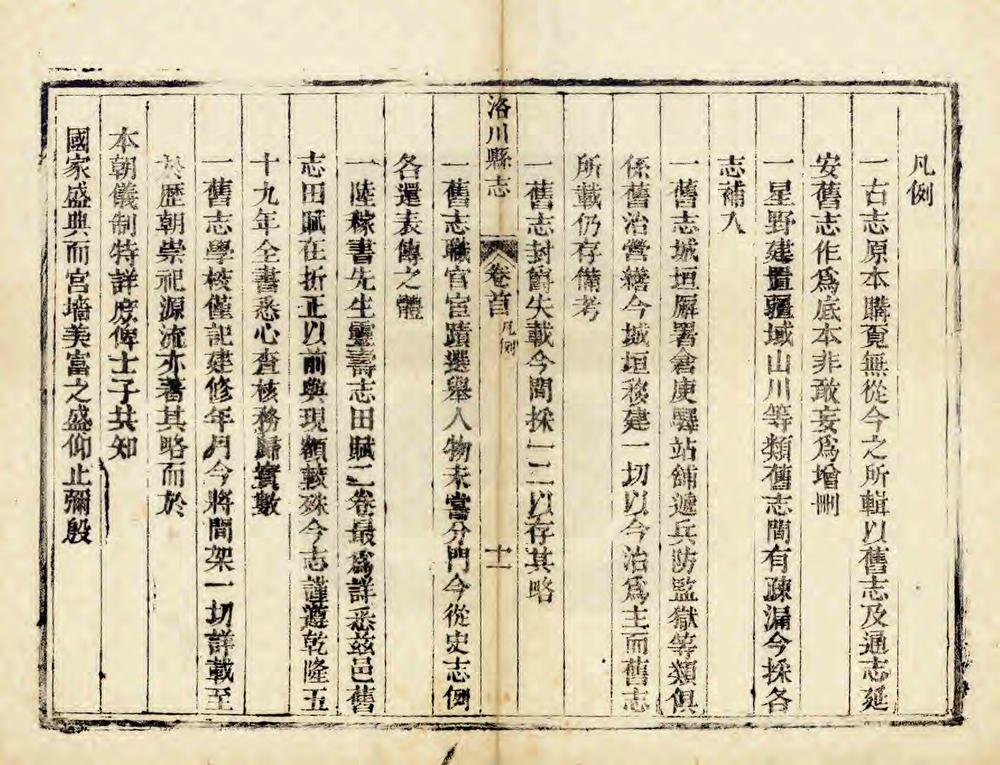 凡例
一古志原本購覓無從今之所輯以舊志及通志延
安舊志作爲底本非敢妄爲增刪
一星野建置疆域山川等類舊志間有疎漏今採各
志補入
一舊志城垣廨署倉庾驛站舖遞兵防監獄等類俱
係舊治營繕今城垣移建一切以今治爲主而舊志
所載仍存備考
一舊志封爵失載今間採一二以存其略
洛川縣志
卷首
凡例
十一
一舊志職官宦蹟選舉人物未嘗分門今從史志例
各還表傳之體
一陸稼書先生靈壽志田賦二卷最爲詳悉兹邑舊
志田賦在折正以前與現額較殊今志謹遵乾隆五
十九年全書悉心查核務歸實數
一舊志學校僅記建修年月今將間架一切詳載至
於歷朝崇祀源流亦著其略而於
本朝儀制特詳庶俾士子共知
國家盛典而宮墻美富之盛仰止彌殷